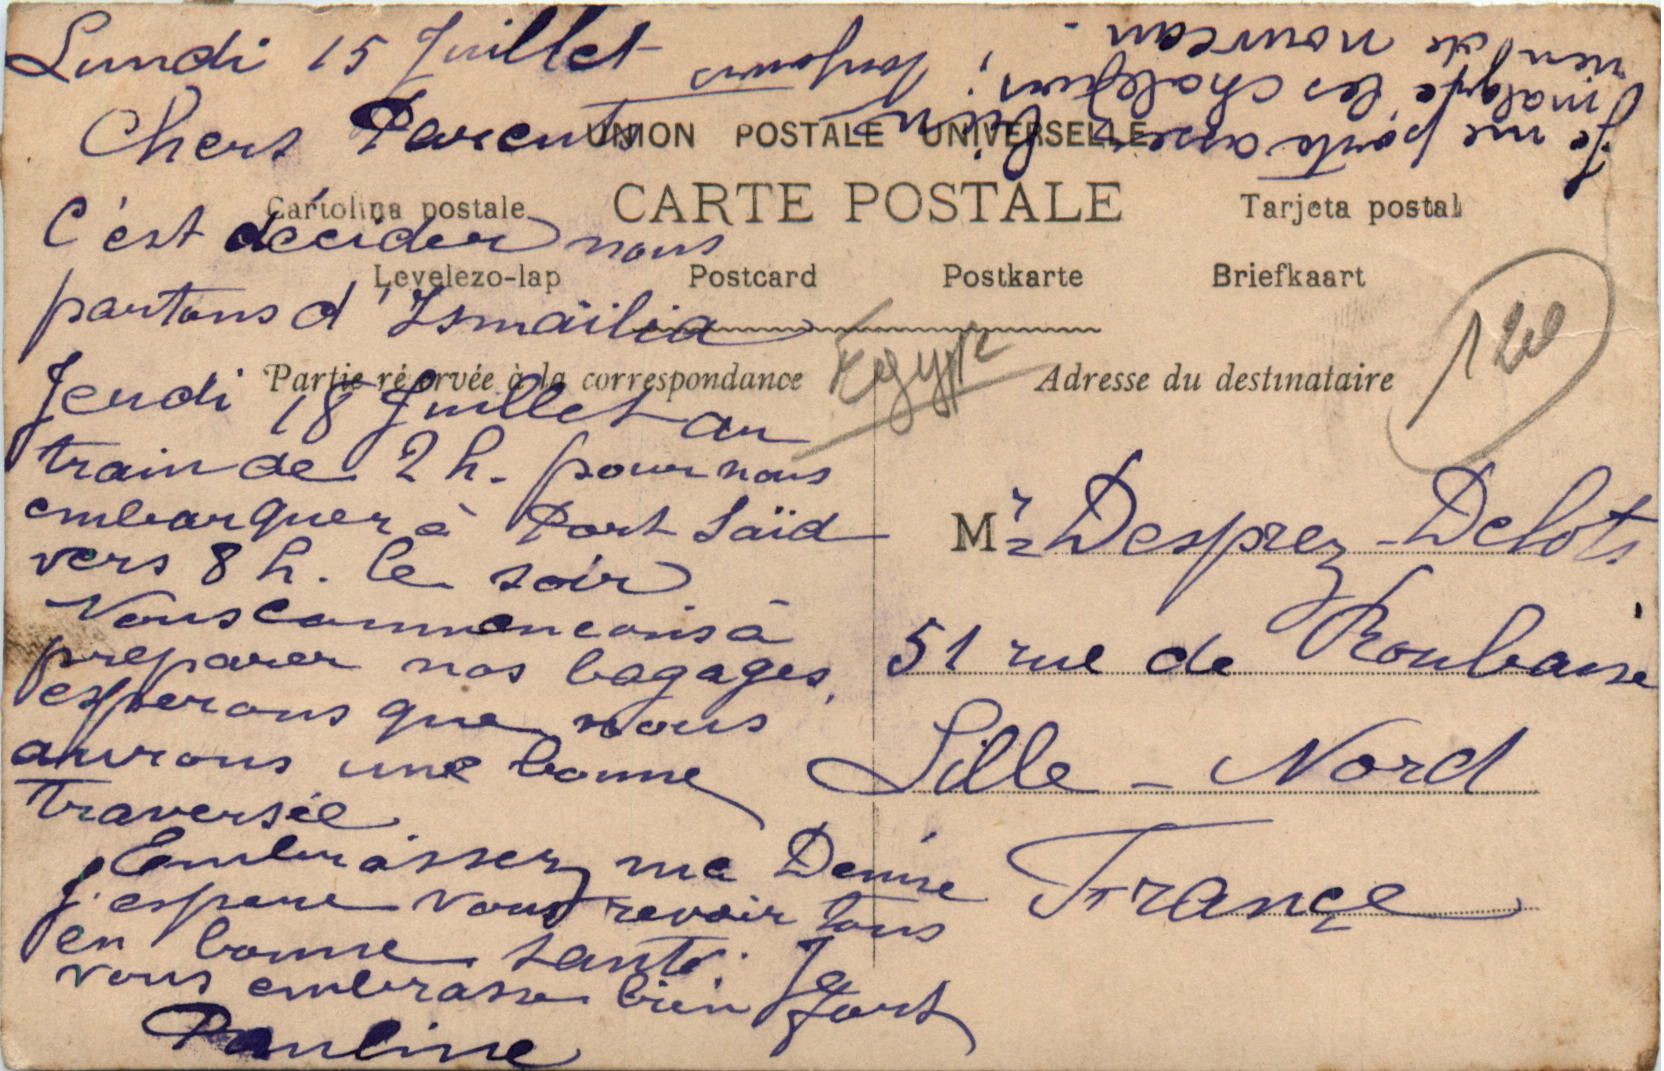 Lundi 15 Juillet
Chers Parents
C'est décider nous
partons d'Ismaïlia
Jeudi 18 Juillet au
train de 2 h. pour nous
embarquer à Port Saïd
vers 8 h. le soir
Nous commencons à
preparer nos bagages,
esperons que nous
aurons une bonne
traversée
Embrassez ma Denise
j'espere vous revoir tous
en bonne santé. Je
vous embrasse bien fort
Pauline
Je me porte assez bien
malgré les chaleurs, toujours
rien de nouveau -
UNION POSTALE UNIVERSELLE
CARTE POSTALE
Cartolina postale
Tarjeta postal
Levelezo-lap
Postcard
Postkarte
Briefkaart
Partie réservée à la correspondance
Adresse du destinataire
Egypte
M r Desprez-Delots
51 rue de Roubaise
Lille - Nord
France